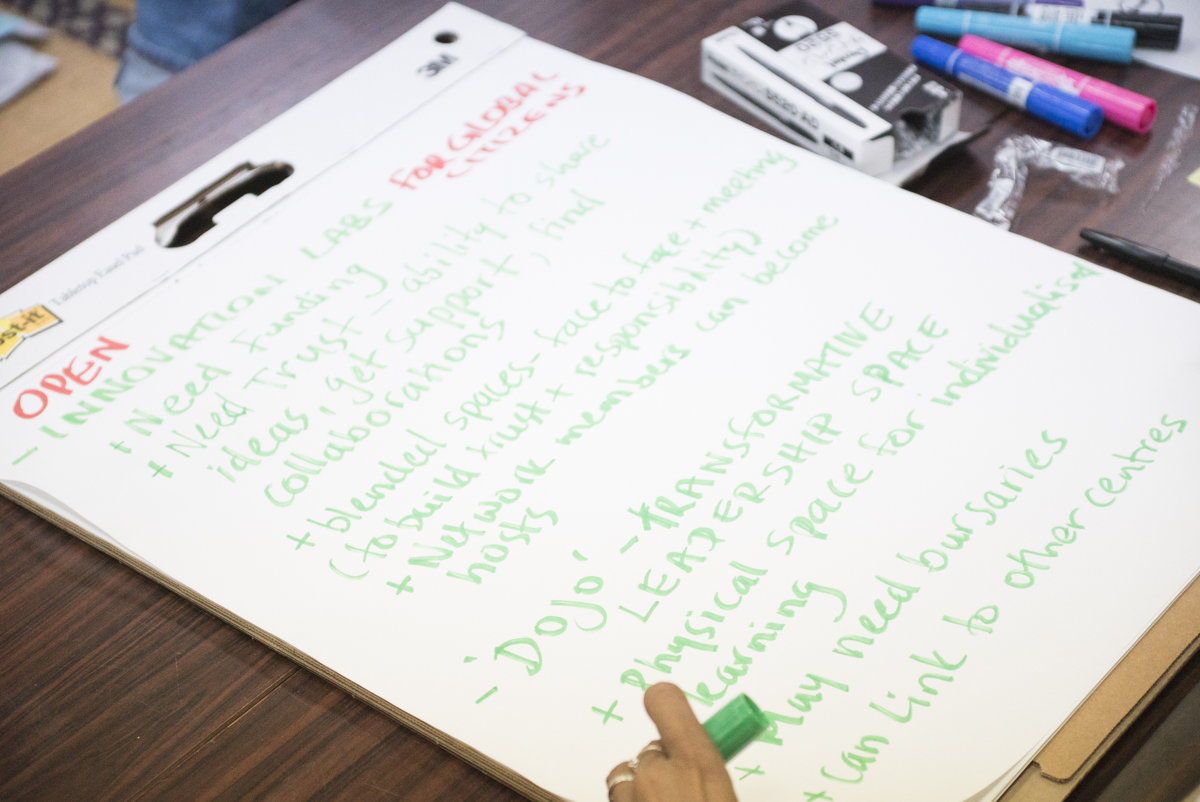 3M
Tabletop Easel Pad
OPEN
- INNOVATION LABS FOR GLOBAL
CITIZENS
+ Need Funding
+ Need Trust - ability to share
ideas, get support, find
collaborations
+ blended spaces - face to face + meeting
(to build trust + responsibility)
+ Network members can become
hosts
- 'DOJO' - TRANSFORMATIVE
LEADERSHIP SPACE
+ Physical space for individualised
learning
+ May need bursaries
+ Can Link to other centres